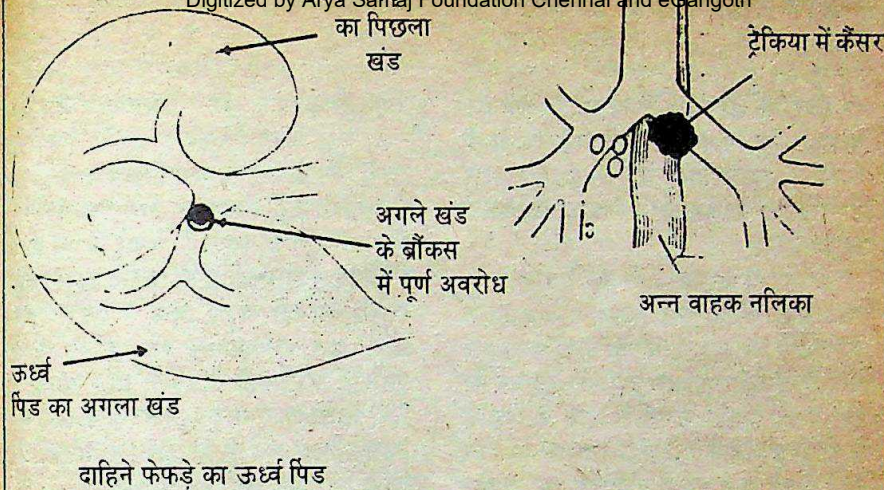 Digitized by Arya Samaj Foundation Chennai and eGangotri
का पिछला
खंड
ट्रेकिया में कैंसर
अगले खंड
के ब्रौंकस
में पूर्ण अवरोध
अन्न वाहक नलिका
ऊर्ध्व
पिंड का अगला खंड
दाहिने फेफड़े का ऊर्ध्व पिंड